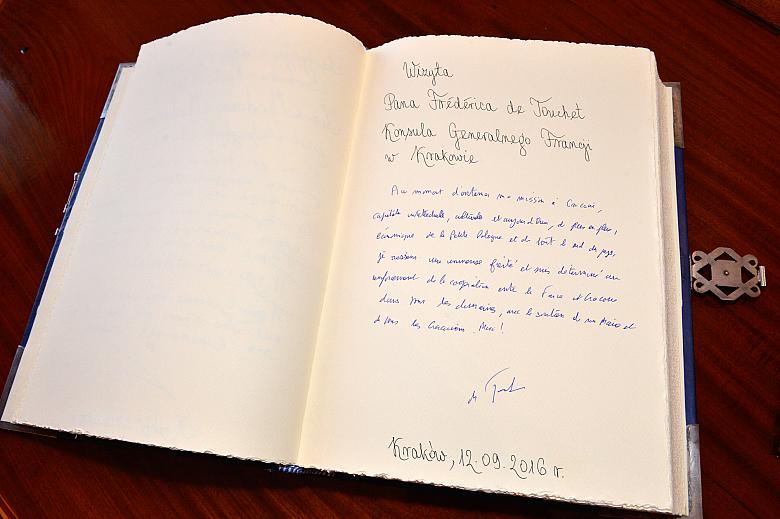 Wizyta
Pana Frédérica de Touchet
Konsula Generalnego Francji
w Krakowie
Au moment d'entamer ma mission à Cracovie,
capitale intellectuelle, culturelle et aujourd'hui, de plus en plus,
économique de la Petite Pologne et de tout le sud du pays,
je ressens une immense fierté et suis déterminé au
renforcement de la coopération entre la France et Cracovie
dans tous les domaines, avec le soutien de son Maire et
de tous les Cracoviens. Merci!
Kraków, 12.09.2016 r.